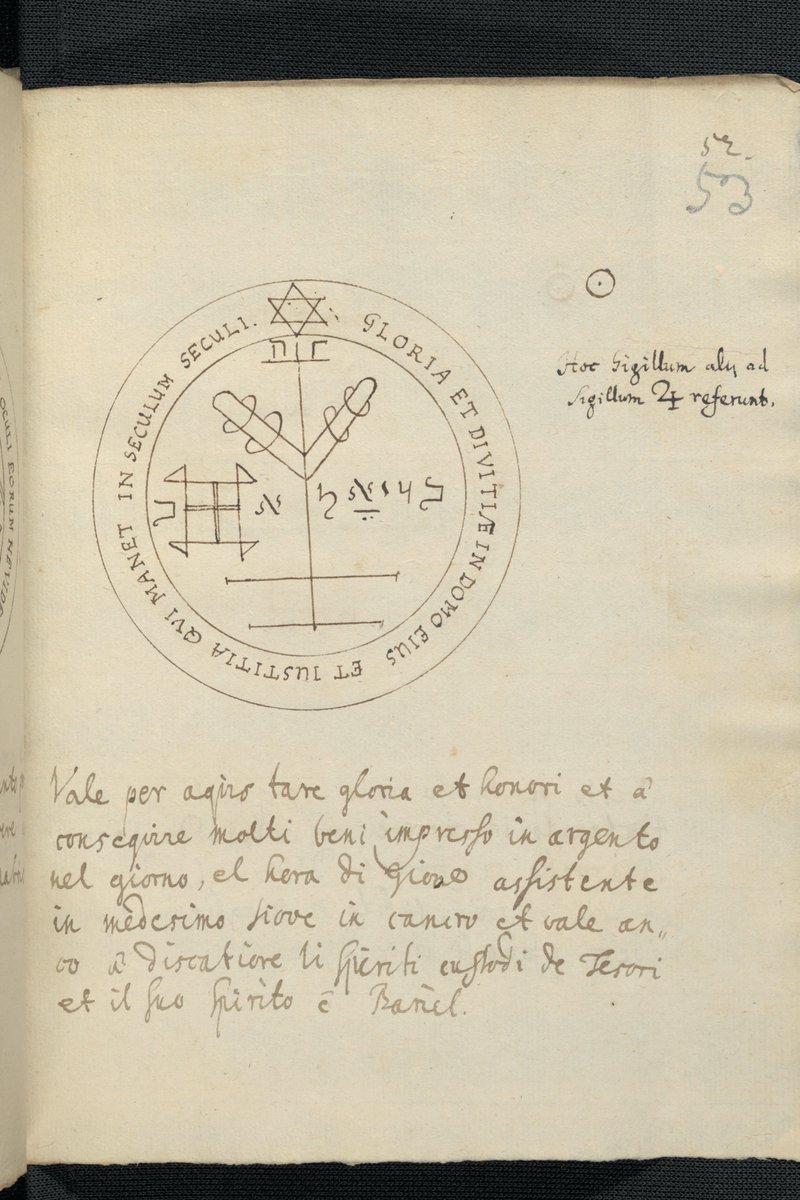 52.
53
GLORIA ET DIVITIÆ IN DOMO EIUS ET IUSTITIA QVI MANET IN SECULUM SECULI.
Hoc Sigillum alij ad
Sigillum ♃ referunt.
Vale per aqiris tare gloria et honori et à
conseqvire molti beni impresso in argento
nel giorno, el hora di Giove assistente
in medesimo Giove in cancro et vale an„
co à discatiore li spiriti custodi de Tesori
et il suo spirito è Bariel.